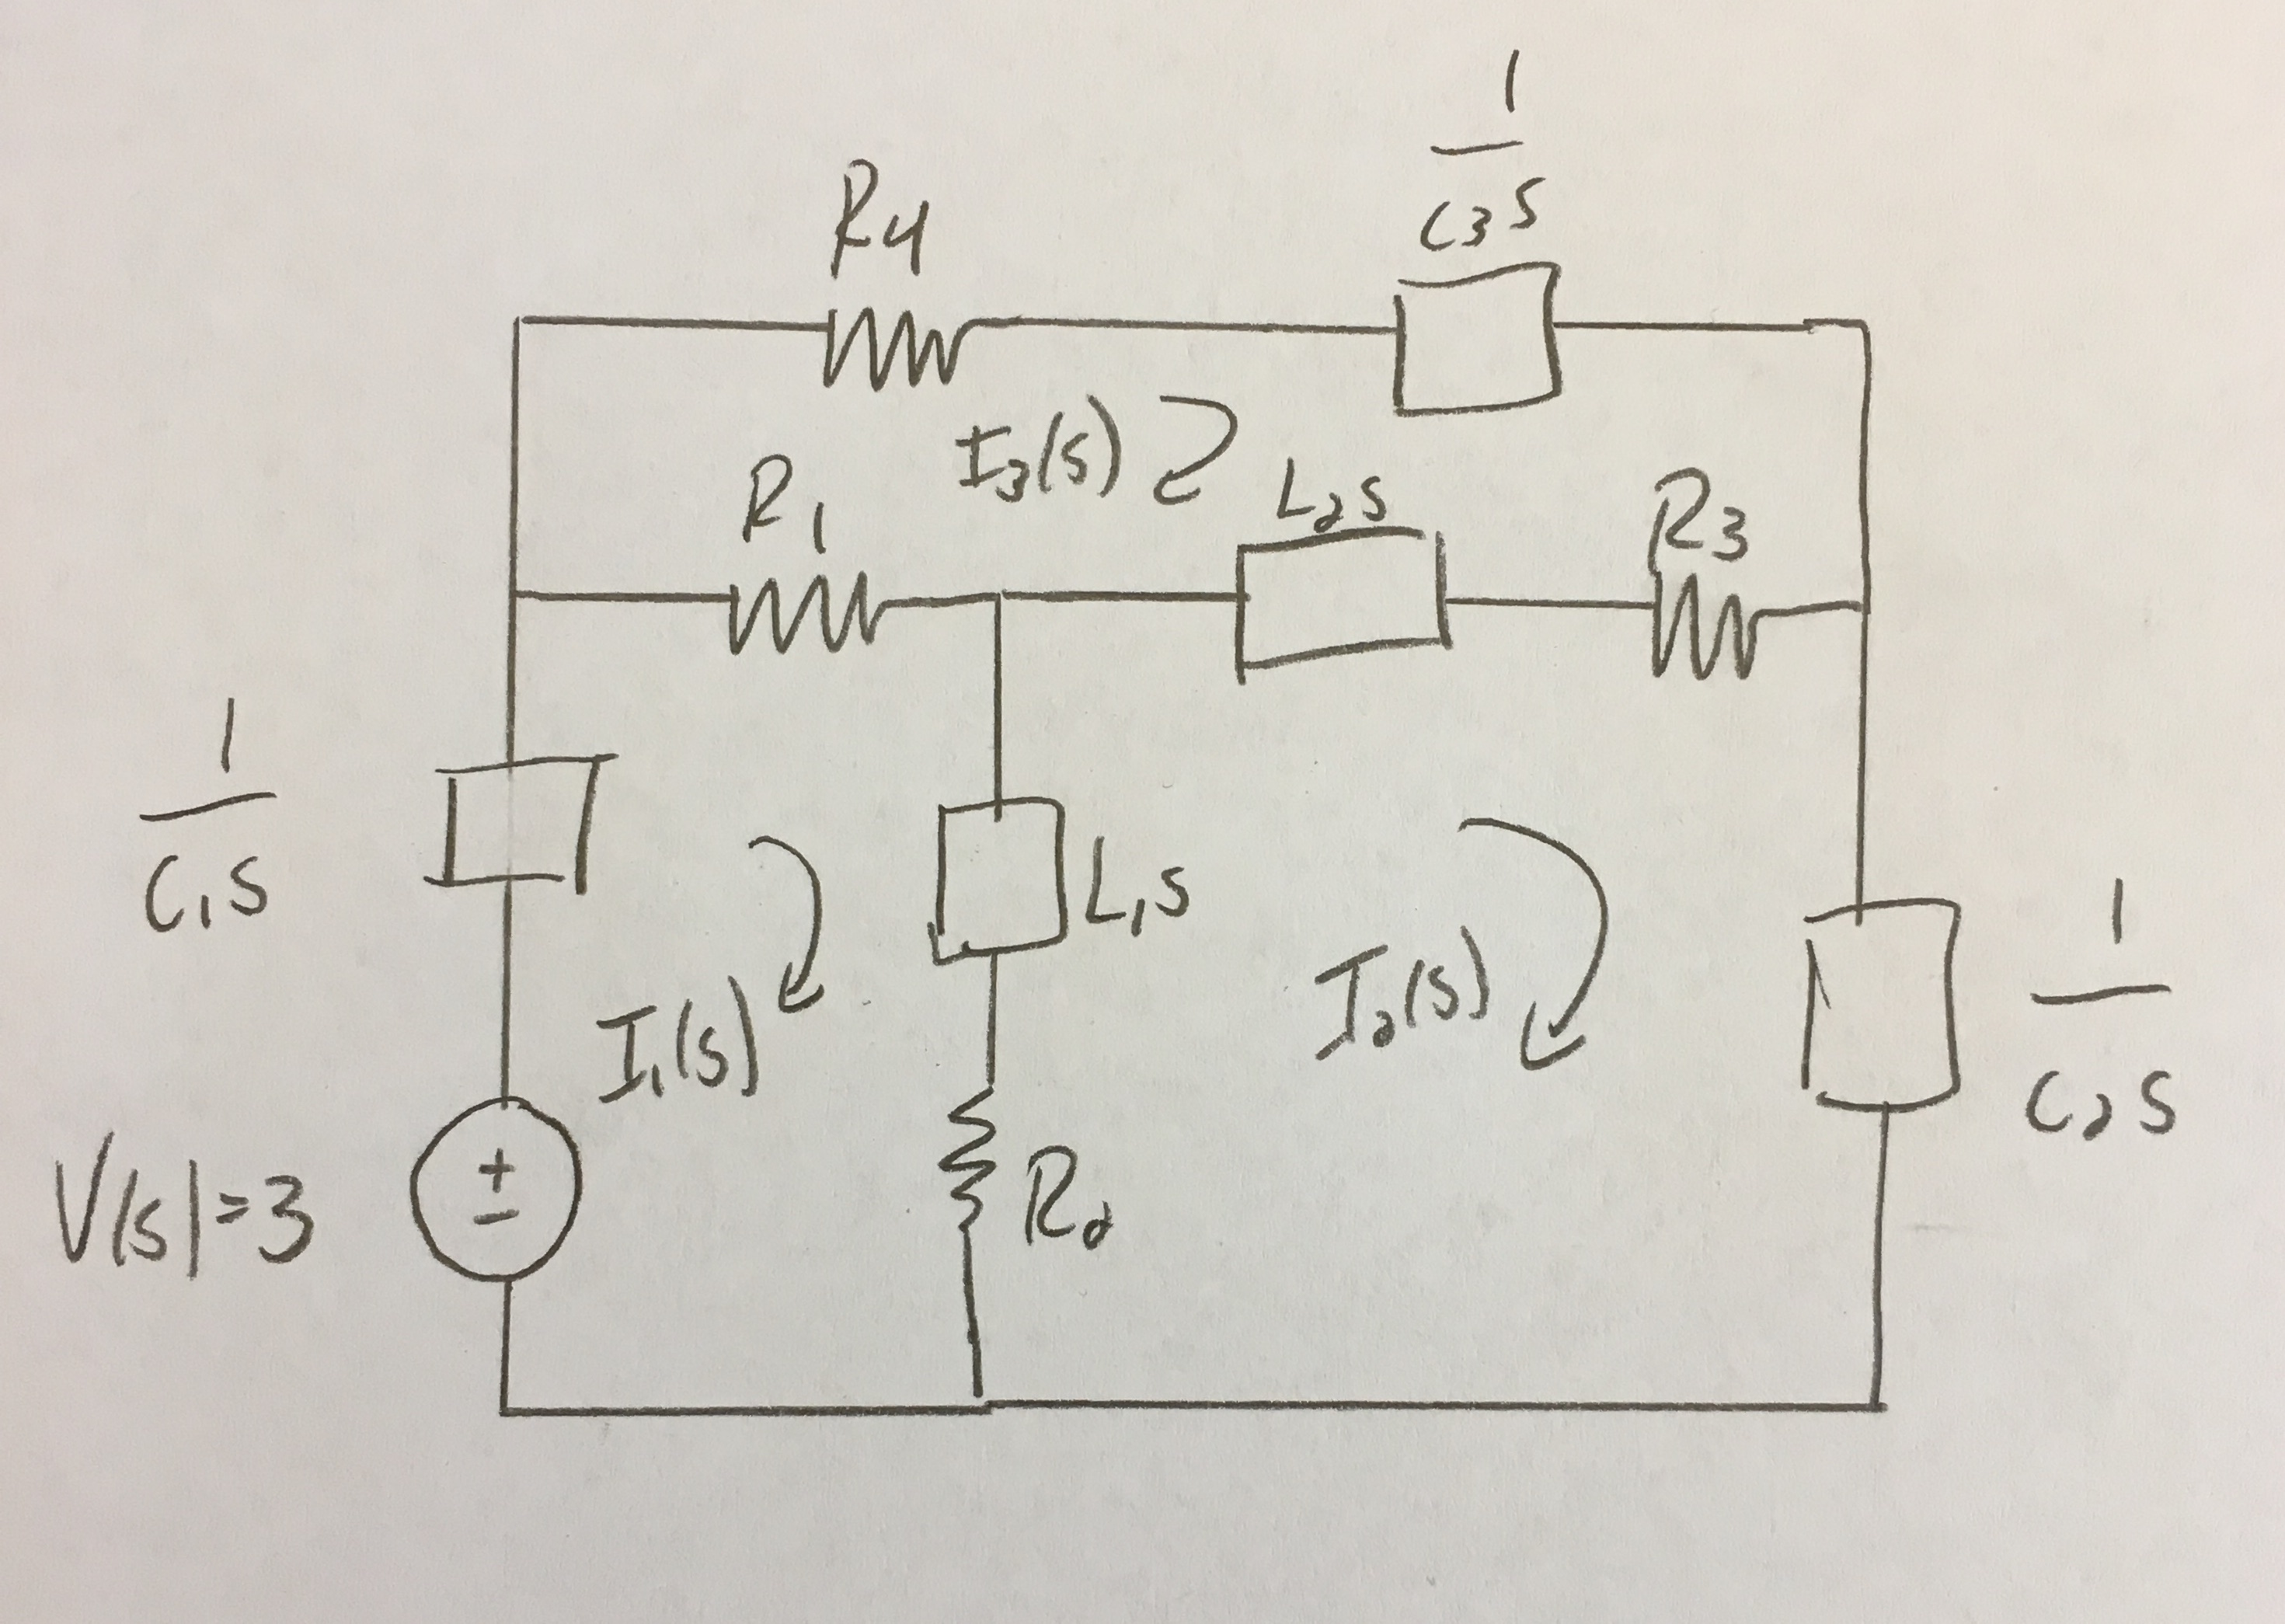 1
C3S
R4
I3(S)
R1
L2S
R3
1
C1S
L1S
I1(S)
I2(S)
1
C2S
+
-
V(s)=3
R2